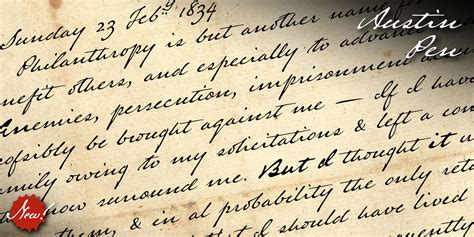 Sunday 23 Febry 1834
Austin
Pen
Philanthropy is but another name for
nefit others, and especially to advance
Enemies, persecution, imprisonment
cossibly be brought against me — If I have
amily owing to my solicitations & left a con
now surround me. But I thought it
them, & in al probability the only ret
I should have lived
New!